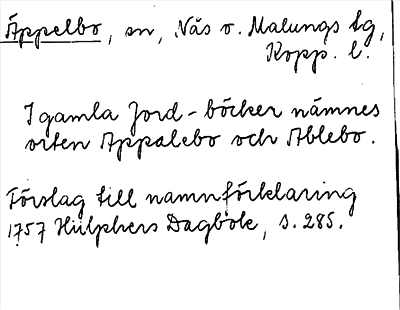 Äppelbo, sn, Nås o. Malungs tg,
Kopp. l.
I gamla Jord-böcker nämnes
orten Appalebo och Ablebo.
Förslag till namnförklaring
1757 Hülphers Dagbok, s. 285.